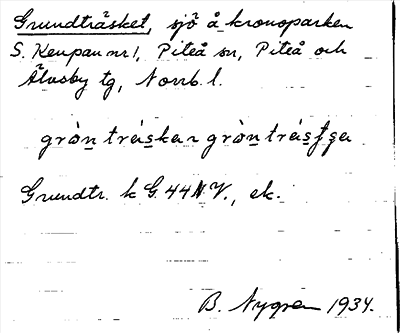 Grundträsket, sjö å kronoparken
S. Keupau nr 1, Piteå sn, Piteå och
Älvsby tg, Norrb. l.
gròn tréskə ~ gròn tréstʂə
Grundtr. k G. 44 N.V., ek.
B. Nygren 1934.